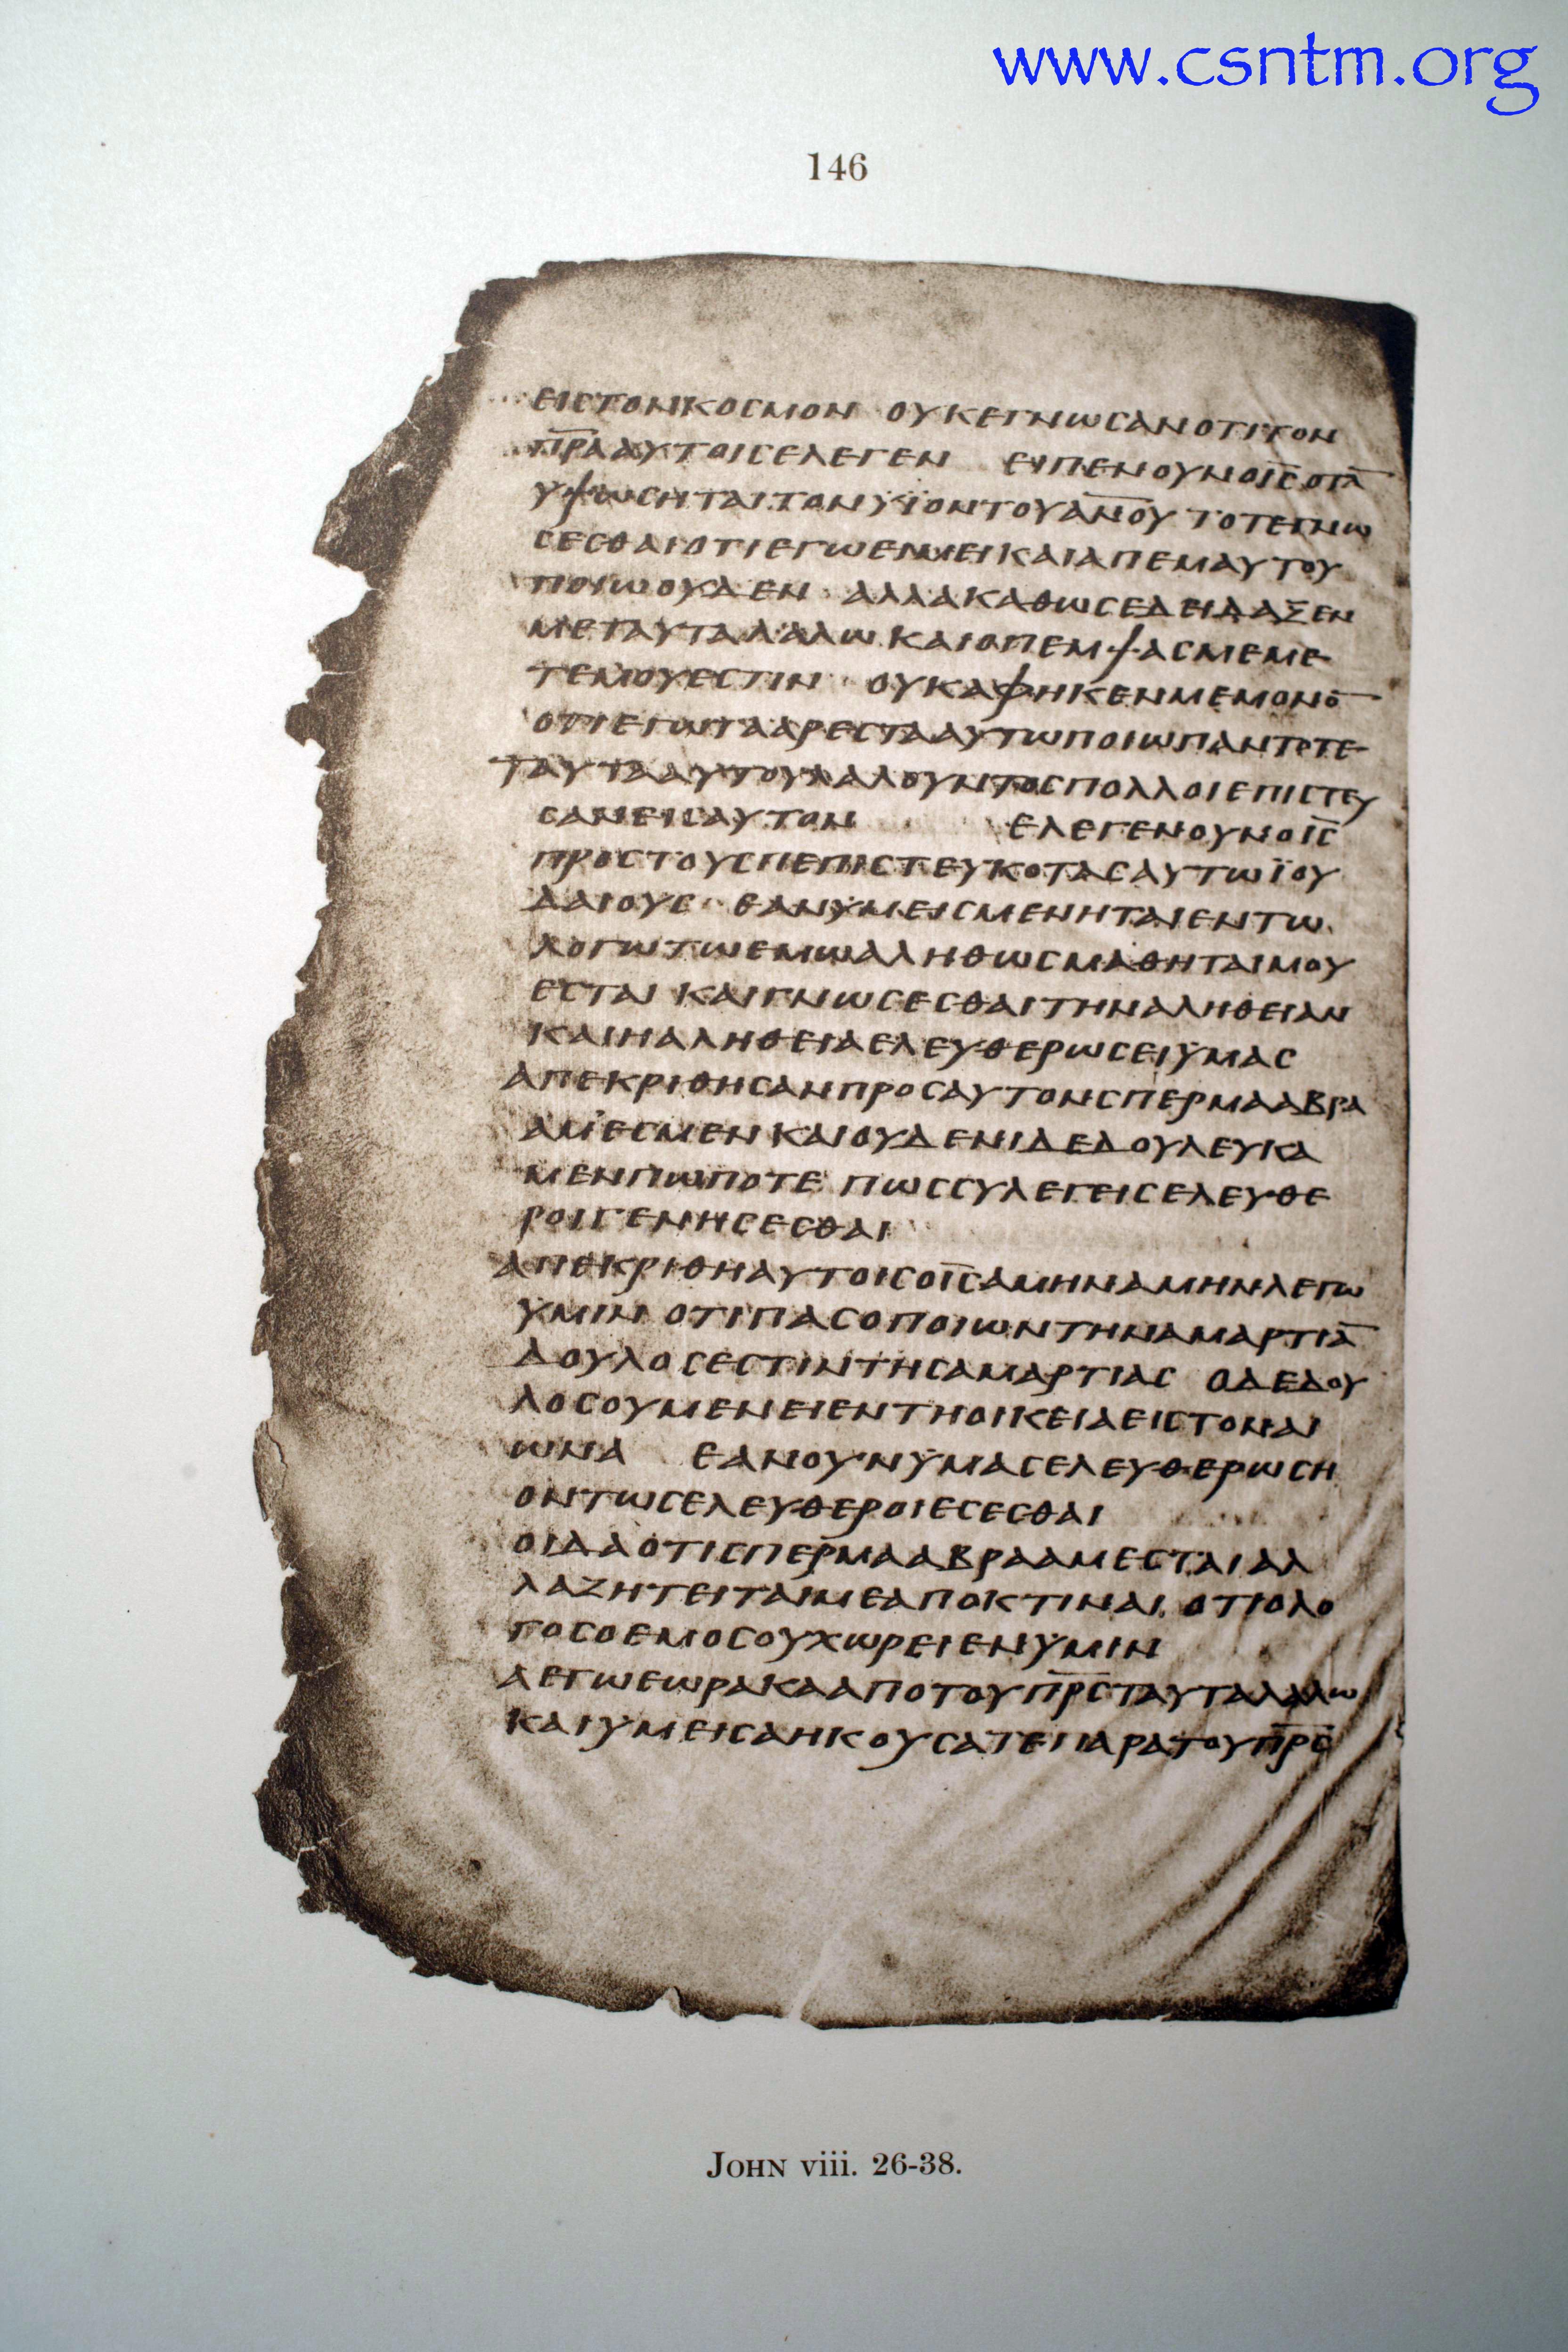 www.csntm.org
146
ΕΙΣΤΟΝΚΟΣΜΟΝ ΟΥΚΕΓΝΩΣΑΝΟΤΙΤΟΝ
Π̅Ρ̅Α̅ΑΥΤΟΙΣΕΛΕΓΕΝ ΕΙΠΕΝΟΥΝΟΙ̅Σ̅ΟΤΑ̅
ΥΨΩΣΗΤΑΙΤΟΝΫΪΟΝΤΟΥΑ̅Ν̅Ο̅Υ̅ ΤΟΤΕΓΝΩ
ΣΕΣΘΑΙΟΤΙΕΓΩΕΝΜΕΙΚΑΙΑΠΕΜΑΥΤΟΥ
ΠΟΙΩΟΥΔΕΝ ΑΛΛΑΚΑΘΩΣΕΔΕΙΔΑΞΕΝ
ΜΕΤΑΥΤΑΛΑΛΩ ΚΑΙΟΠΕΜΨΑΣΜΕΜΕ
ΤΕΜΟΥΕΣΤΙΝ ΟΥΚΑΦΗΚΕΝΜΕΜΟΝΟ̅
ΟΤΙΕΓΩΤΑΑΡΕΣΤΑΑΥΤΩΠΟΙΩΠΑΝΤΟΤΕ
ΤΑΥΤΑΑΥΤΟΥΛΑΛΟΥΝΤΟΣΠΟΛΛΟΙΕΠΙΣΤΕΥ
ΣΑΝΕΙΣΑΥΤΟΝ ΕΛΕΓΕΝΟΥΝΟΙ̅Σ̅
ΠΡΟΣΤΟΥΣΠΕΠΙΣΤΕΥΚΟΤΑΣΑΥΤΩΪΟΥ
ΔΑΙΟΥΣ ΕΑΝΫΜΕΙΣΜΕΝΗΤΑΙΕΝΤΩ
ΛΟΓΩΤΩΕΜΩΑΛΗΘΩΣΜΑΘΗΤΑΙΜΟΥ
ΕΣΤΑΙ ΚΑΙΓΝΩΣΕΣΘΑΙΤΗΝΑΛΗΘΕΙΑΝ
ΚΑΙΗΑΛΗΘΕΙΑΕΛΕΥΘΕΡΩΣΕΙΫΜΑΣ
ΑΠΕΚΡΙΘΗΣΑΝΠΡΟΣΑΥΤΟΝΣΠΕΡΜΑΑΒΡΑ
ΑΜΕΣΜΕΝΚΑΙΟΥΔΕΝΙΔΕΔΟΥΛΕΥΚΑ
ΜΕΝΠΩΠΟΤΕ ΠΩΣΣΥΛΕΓΕΙΣΕΛΕΥΘΕ
ΡΟΙΓΕΝΗΣΕΣΘΑΙ
ΑΠΕΚΡΙΘΗΑΥΤΟΙΣΟΙ̅Σ̅ΑΜΗΝΑΜΗΝΛΕΓΩ
ΫΜΙΝ ΟΤΙΠΑΣΟΠΟΙΩΝΤΗΝΑΜΑΡΤΙΑ̅
ΔΟΥΛΟΣΕΣΤΙΝΤΗΣΑΜΑΡΤΙΑΣ ΟΔΕΔΟΥ
ΛΟΣΟΥΜΕΝΕΙΕΝΤΗΟΙΚΕΙΑΕΙΣΤΟΝΑΙ
ΩΝΑ ΕΑΝΟΥΝΫΜΑΣΕΛΕΥΘΕΡΩΣΗ
ΟΝΤΩΣΕΛΕΥΘΕΡΟΙΕΣΕΣΘΑΙ
ΟΙΔΑΟΤΙΣΠΕΡΜΑΑΒΡΑΑΜΕΣΤΑΙΑΛ
ΛΑΖΗΤΕΙΤΑΙΜΕΑΠΟΚΤΙΝΑΙ ΟΤΙΟΛΟ
ΓΟΣΟΕΜΟΣΟΥΧΩΡΕΙΕΝΫΜΙΝ
ΑΕΓΩΕΩΡΑΚΑΑΠΟΤΟΥΠ̅Ρ̅Σ̅ΤΑΥΤΑΛΑΛΩ
ΚΑΙΫΜΕΙΣΑΗΚΟΥΣΑΤΕΠΑΡΑΤΟΥΠ̅Ρ̅Σ̅
JOHN viii. 26-38.